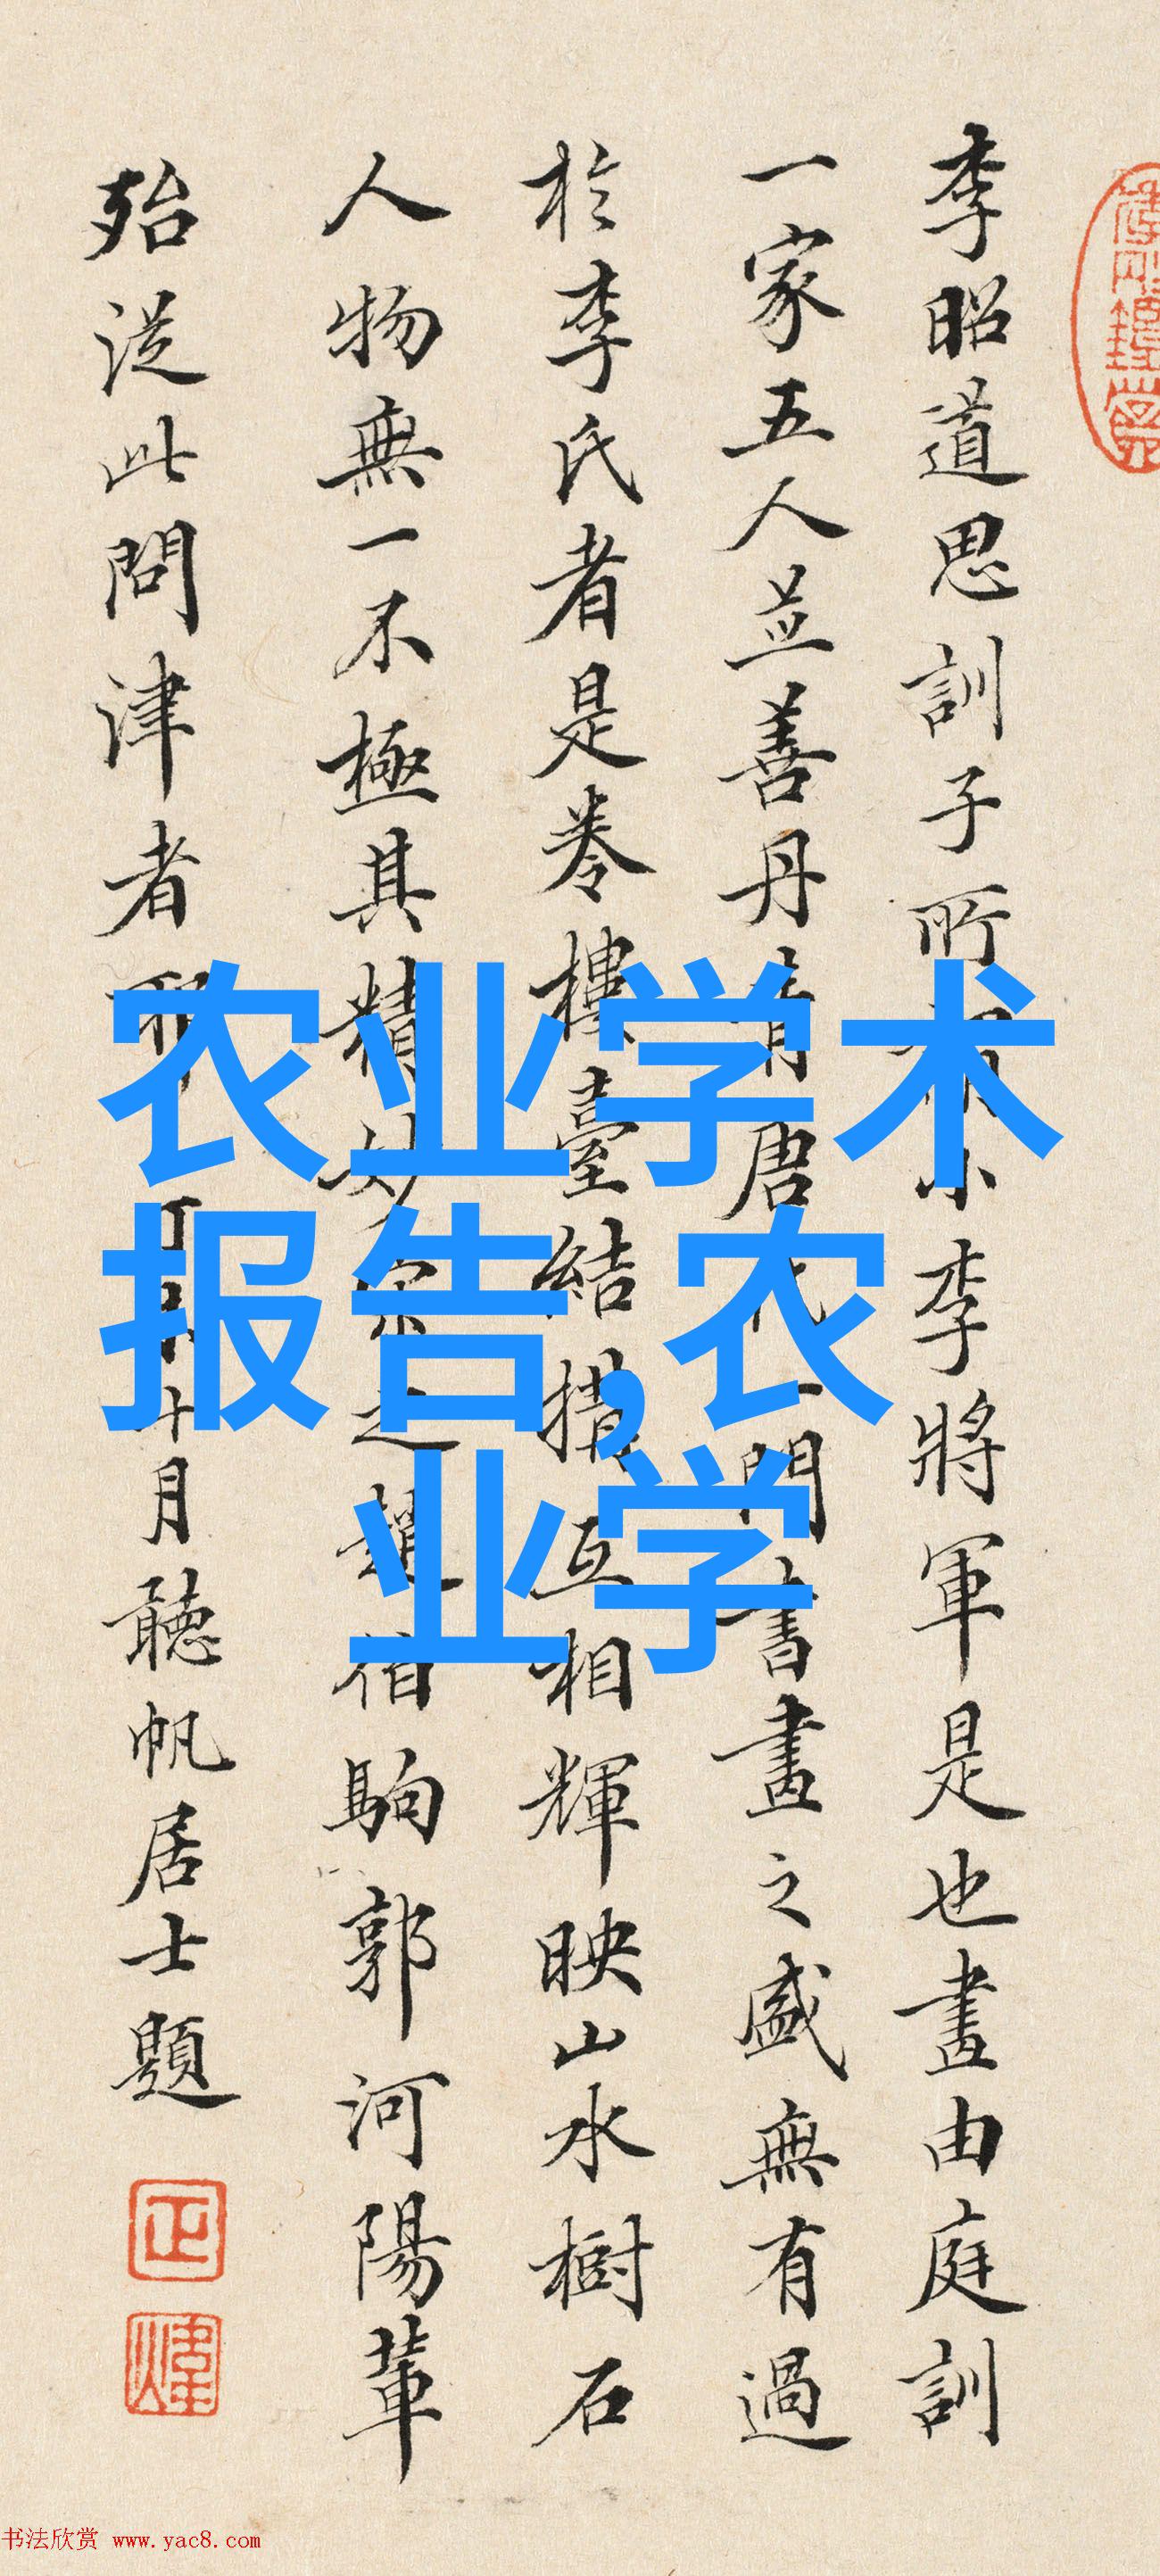 李昭道思訓子所 小李將軍是也畫由庭訓
一家五人並善丹青唐代一門書畫之盛無有過
於李氏者是卷樓臺結搆互相輝映山水樹石
人物無一不極其精妙 趙伯駒郭河陽輩
殆從此問津者耶 十月聽帆居士題
农业学术
报告,农
业学
书法欣赏 www.yac8.com